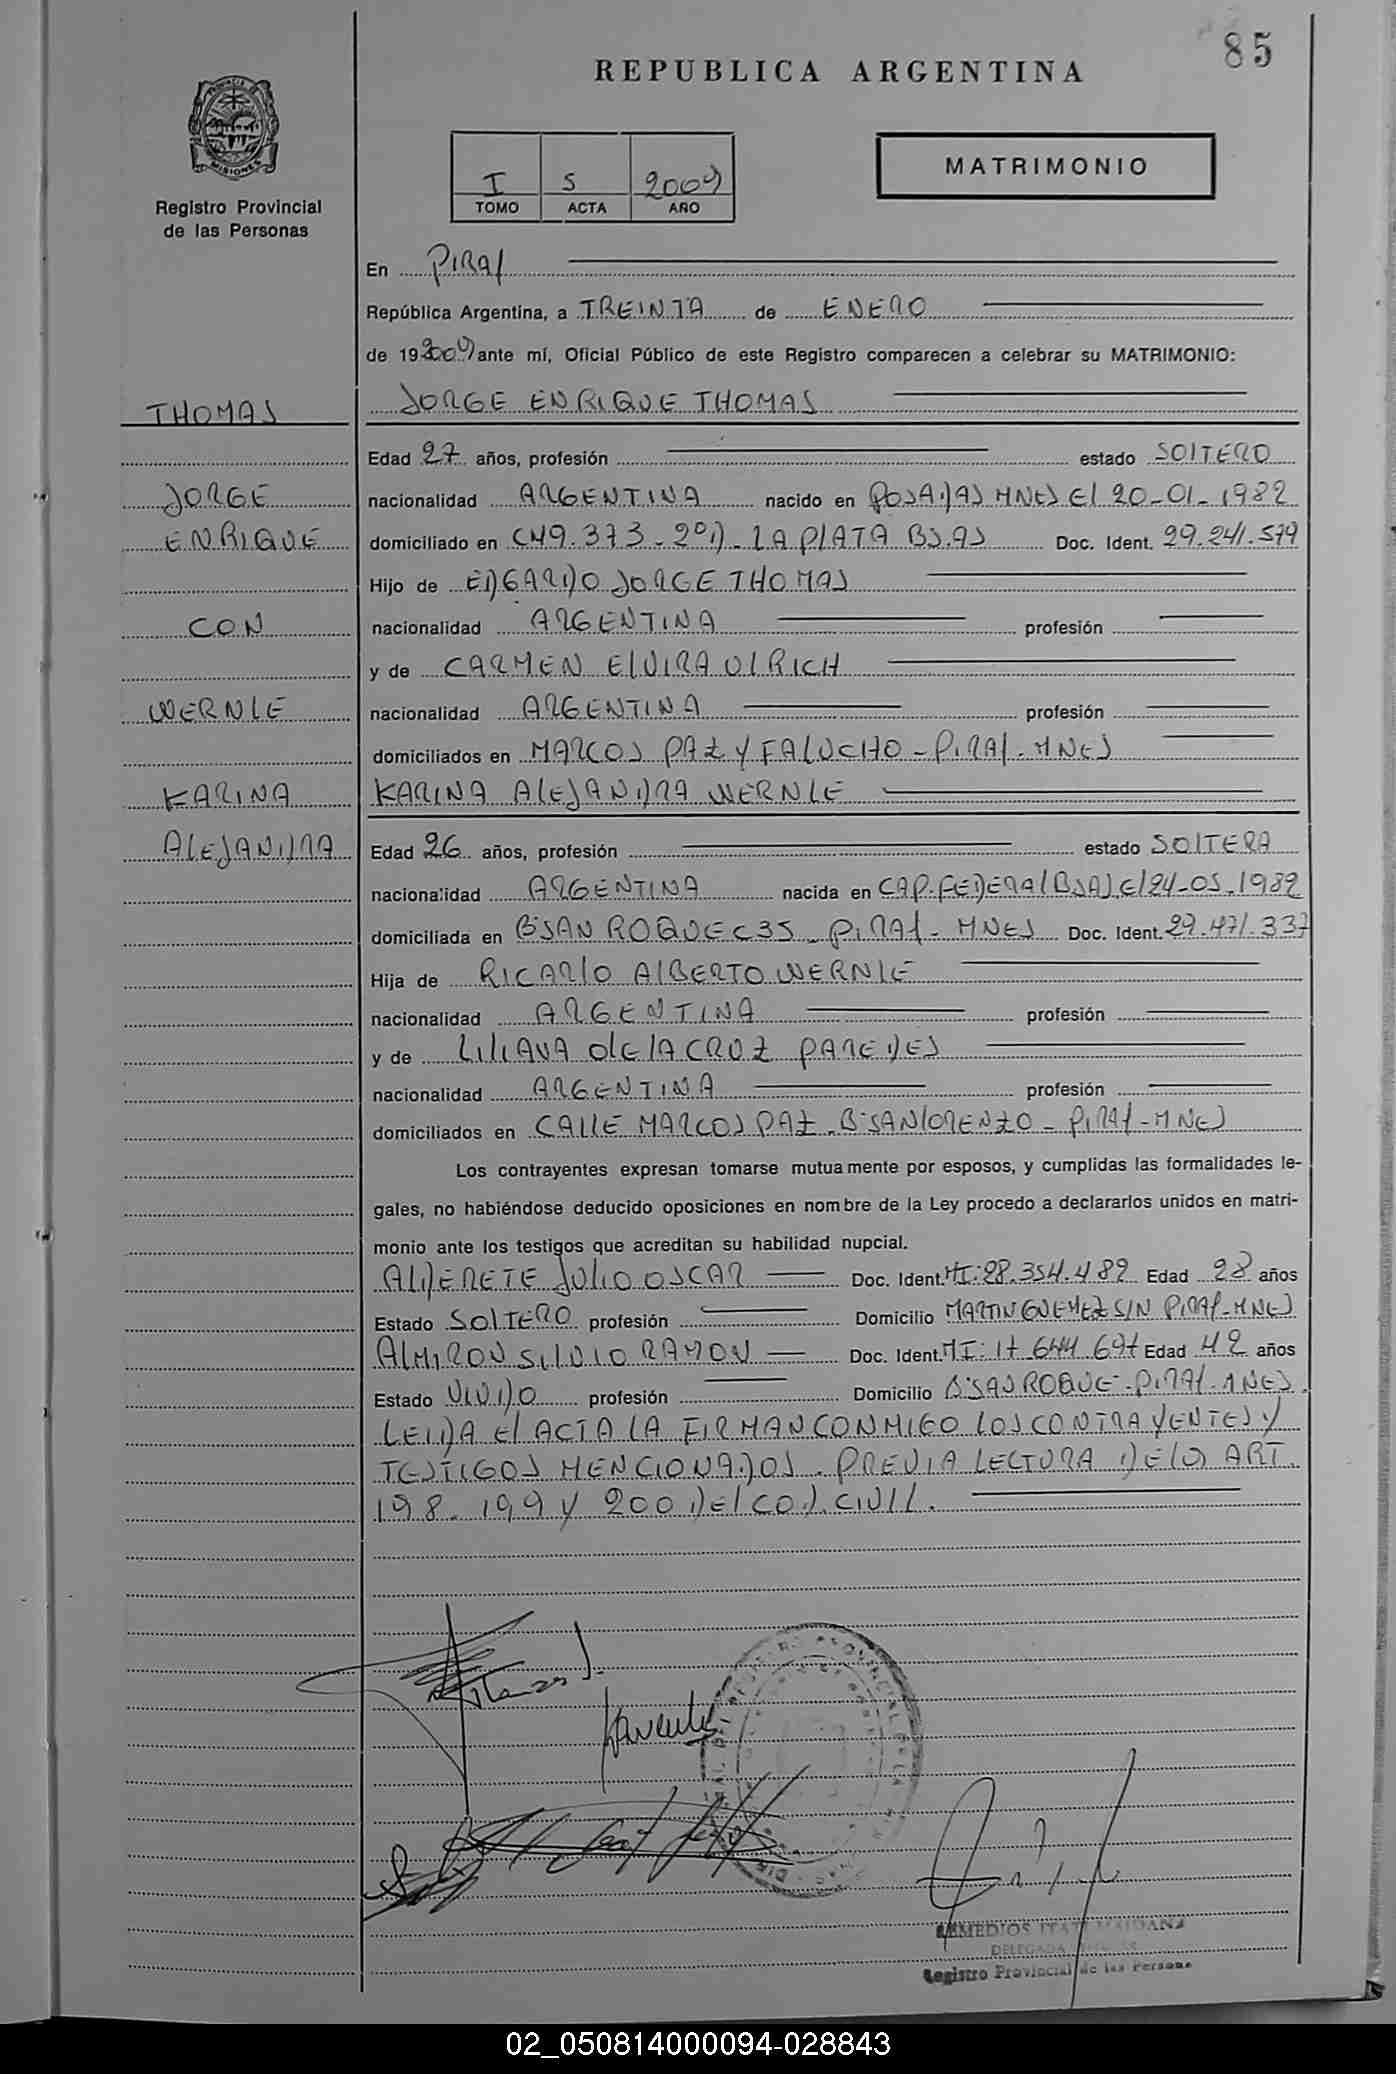 85
REPUBLICA ARGENTINA
PROVINCIA DE
MISIONES
Registro Provincial
de las Personas
I S 2009
TOMO ACTA AÑO
MATRIMONIO
En PIRAY
República Argentina, a TREINTA de ENERO
de 19 2009 ante mí, Oficial Público de este Registro comparecen a celebrar su MATRIMONIO:
THOMAS
JORGE ENRIQUE THOMAS
Edad 27 años, profesión estado SOLTERO
JORGE
nacionalidad ARGENTINA nacido en POSADAS MNES El 20-01-1982
ENRIQUE
domiciliado en C49.373-2ºD-LA PLATA BS.AS Doc. Ident. 29.241.579
Hijo de EDGARDO JORGE THOMAS
CON
nacionalidad ARGENTINA profesión
y de CARMEN ELVIRA ULRICH
WERNLE
nacionalidad ARGENTINA profesión
domiciliados en MARCOS PAZ Y FALUCHO-PIRAY-MNES
KARINA
KARINA ALEJANDRA WERNLE
ALEJANDRA
Edad 26 años, profesión estado SOLTERA
nacionalidad ARGENTINA nacida en CAP.FEDERAL BSAS El 24-05-1982
domiciliada en BºSAN ROQUE C35-PIRAY-MNES Doc. Ident. 29.471.337
Hija de RICARDO ALBERTO WERNLE
nacionalidad ARGENTINA profesión
y de LILIANA DE LA CRUZ PAREDES
nacionalidad ARGENTINA profesión
domiciliados en CALLE MARCOS PAZ-BºSAN LORENZO-PIRAY-MNES
Los contrayentes expresan tomarse mutuamente por esposos, y cumplidas las formalidades le-
gales, no habiéndose deducido oposiciones en nombre de la Ley procedo a declararlos unidos en matri-
monio ante los testigos que acreditan su habilidad nupcial.
ALDERETE JULIO OSCAR Doc. Ident. MI:28.354.489 Edad 28 años
Estado SOLTERO profesión Domicilio MARTIN GUEMEZ S/N PIRAY-MNES
ALMIRON SILVIO RAMON Doc. Ident. MI:17.644.697 Edad 42 años
Estado VIUDO profesión Domicilio BºSAN ROQUE-PIRAY-MNES.
LEIDA El ACTA LA FIRMAN CONMIGO LOS CONTRAYENTES Y
TESTIGOS MENCIONADOS. PREVIA LECTURA DE LOS ART.
198-199 Y 200 DEL COD.CIVIL.
REMEDIOS ITATI MAIDANA
DELEGADA
Registro Provincial de las Personas
02_050814000094-028843